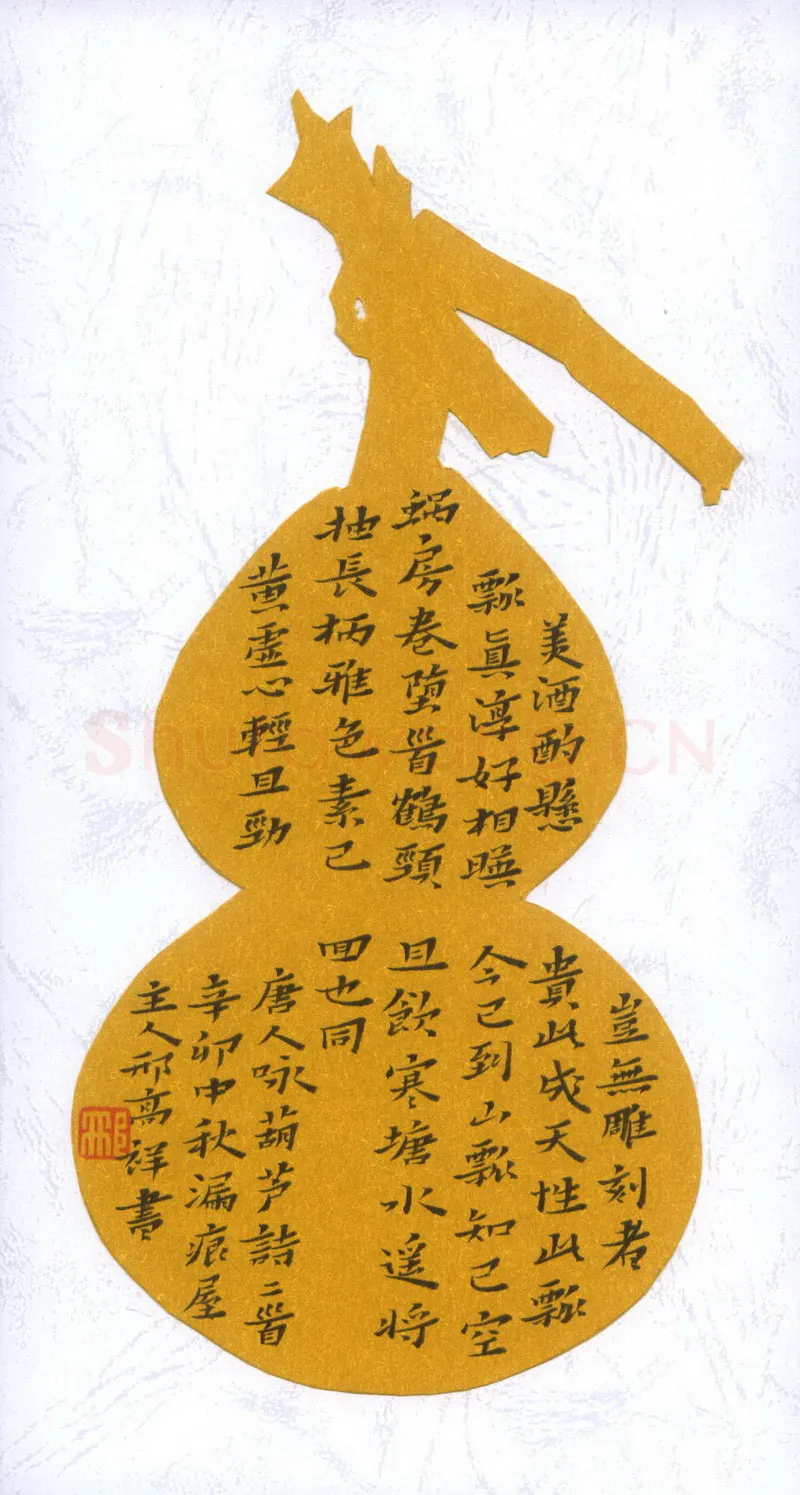 美酒酌懸
瓢眞淳好相暎
蝸房卷墮首鶴頸
抽長柄雅色素已
黃虛心輕且勁
豈無雕刻者
貴此成天性此瓢
今已到山瓢知已空
且飲寒塘水遥将
囬也同
唐人咏葫芦詩二首
辛卯中秋漏痕屋
主人邢高祥書
邢